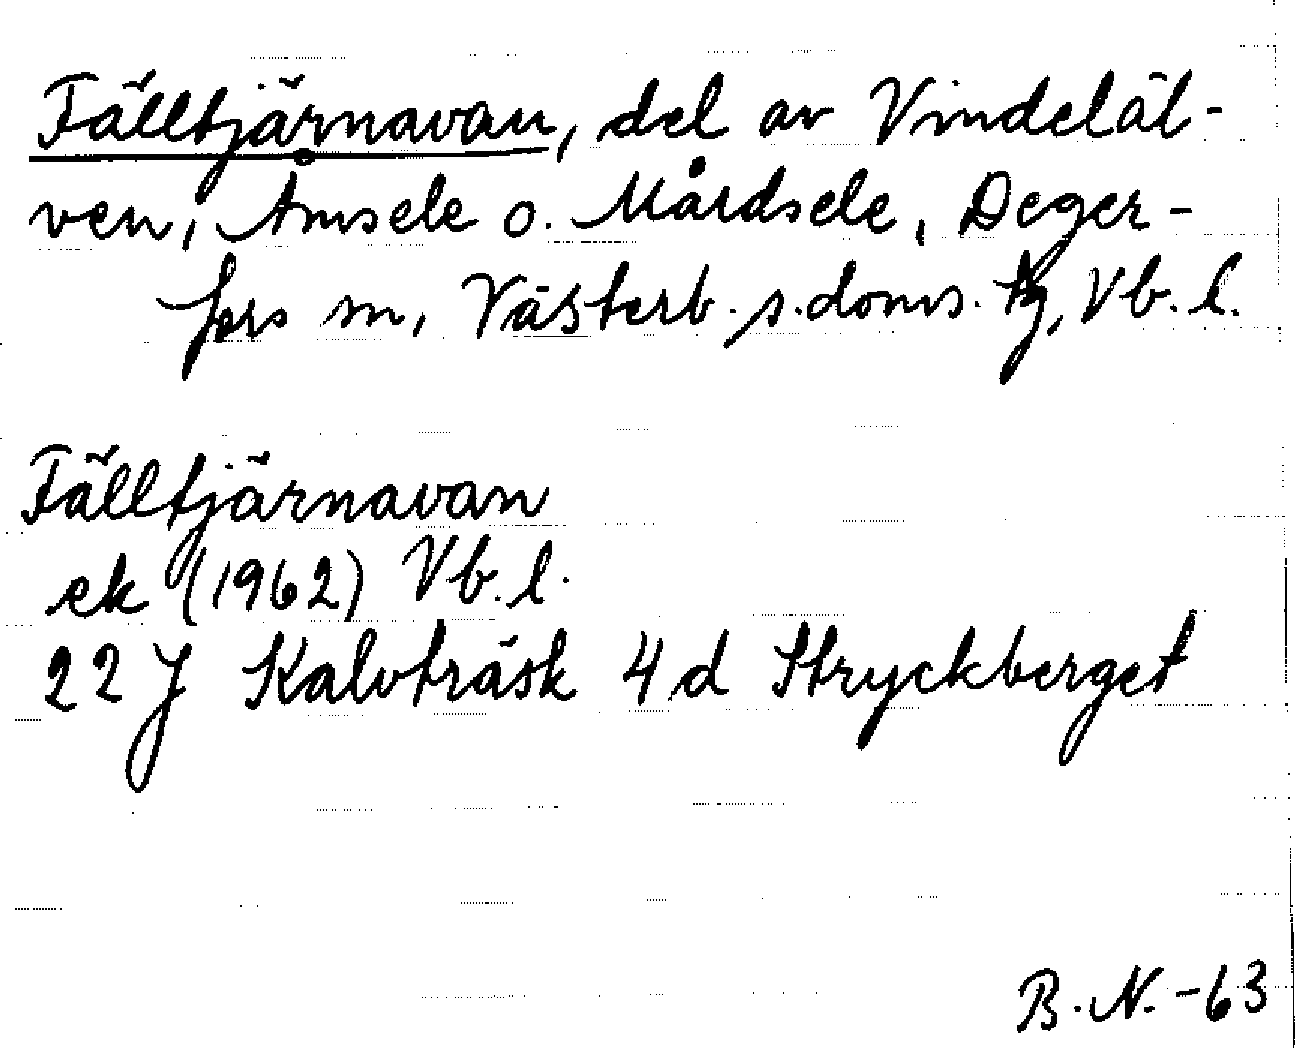 Fälltjärnavan, del av Vindeläl-
ven, Åmsele o. Mårdsele, Deger-
fors sn, Västerb. s. doms. tg, Vb. l.
Fälltjärnavan
ek (1962) Vb. l.
22 J Kalvträsk 4 d Stryckberget
B. N. -63